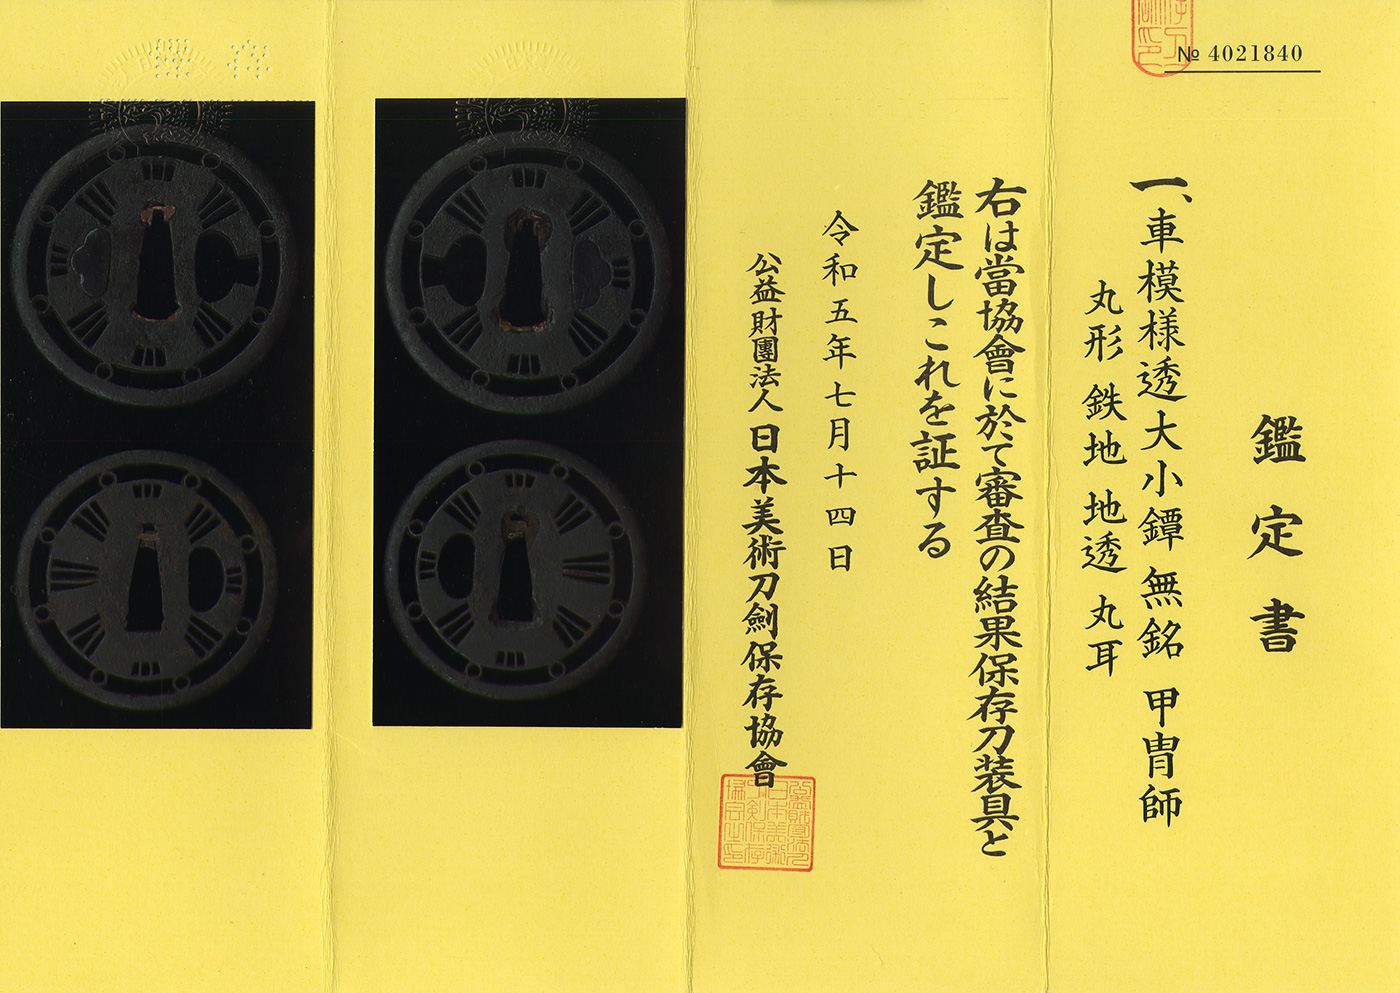 № 4021840
鑑定書
一、車模様透大小鐔 無銘 甲冑師
丸形 鉄地 地透 丸耳
右は當協會に於て審査の結果保存刀装具と
鑑定しこれを証する
令和五年七月十四日
公益財團法人日本美術刀剣保存協會